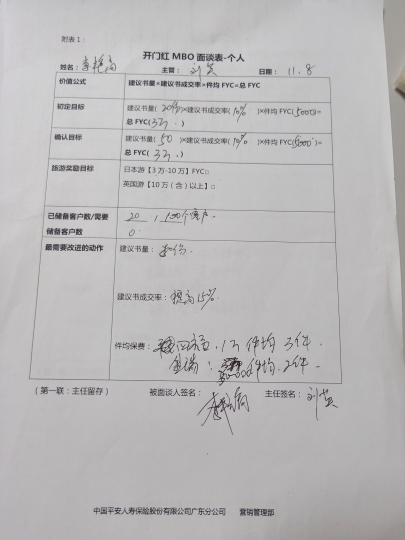 附表1：
开门红 MBO 面谈表-个人
姓名： 主管： 刘英 日期： 11.8
价值公式 建议书量×建议书成交率×件均 FYC=总 FYC
初定目标 建议书量(20份)×建议书成交率(10%)×件均 FYC(5000)=
总 FYC(3万.)
确认目标 建议书量(50)×建议书成交率(10%)×件均 FYC(5000)=
总 FYC(3万.)
旅游奖励目标 日本游【3万-10万】FYC□
英国游【10万（含）以上】□
已储备客户数/需要 20，100个客户.
储备客户数 0
最需要改进的动作 建议书量：
建议书成交率：提高15%
件均保费： 1万件均3件
件均.2件.
（第一联：主任留存） 被面谈人签名： 主任签名：刘英
中国平安人寿保险股份有限公司广东分公司 营销管理部